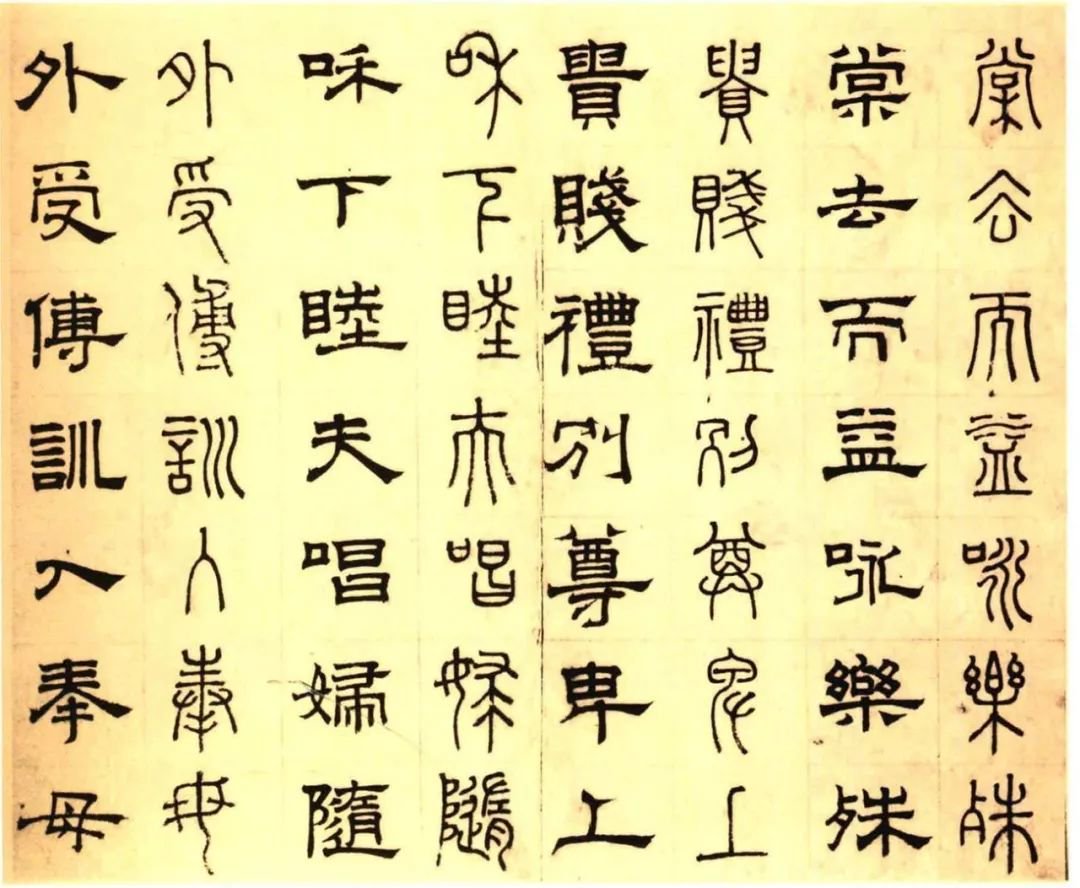 棠去而益咏樂殊
棠去而益咏樂殊
貴賤禮別尊卑上
貴賤禮別尊卑上
咊下睦夫唱婦隨
咊下睦夫唱婦隨
外受傅訓入奉母
外受傅訓入奉母